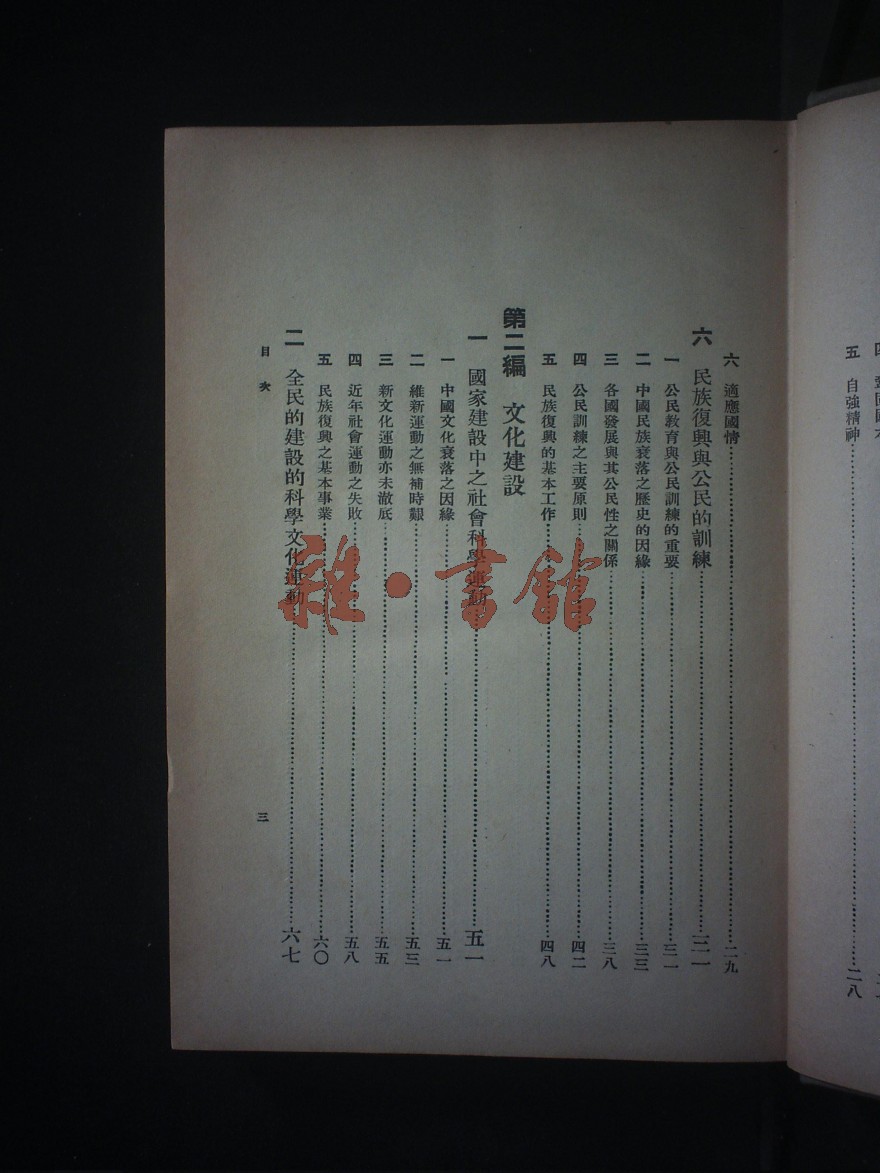 五 自強精神……二八
六 適應國情……二九
六 民族復興與公民的訓練……三一
一 公民教育與公民訓練的重要……三一
二 中國民族衰落之歷史的因緣……三三
三 各國發展與其公民性之關係……三八
四 公民訓練之主要原則……四二
五 民族復興的基本工作……四八
第二編 文化建設
一 國家建設中之社會科學運動……五一
一 中國文化衰落之因緣……五一
二 維新運動之無補時艱……五三
三 新文化運動亦未澈底……五五
四 近年社會運動之失敗……五八
五 民族復興之基本事業……六〇
二 全民的建設的科學文化運動……六七
目次
三
雜·書館